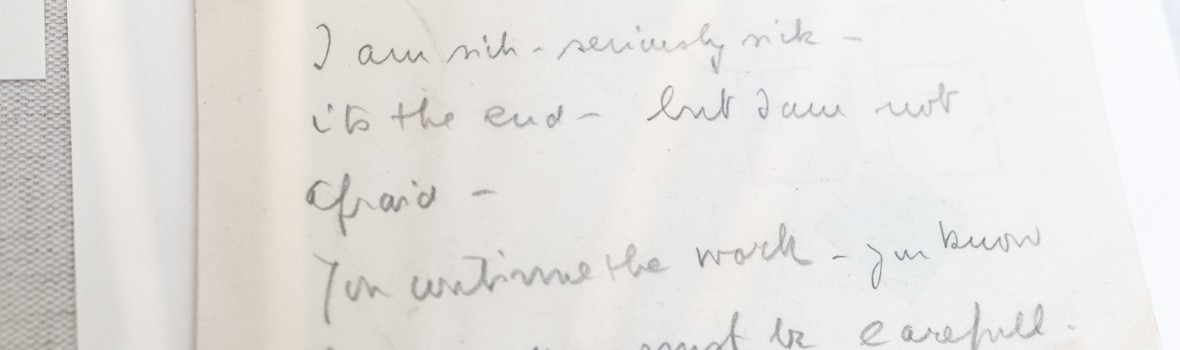 I am sick - seriously sick -
its the end - but I am not
afraid -
You continue the work - you know
must be carefull.